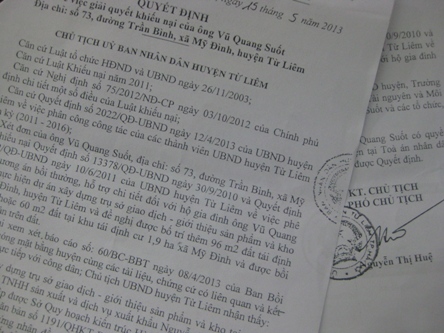 ngày 15 tháng 5 năm 2013
QUYẾT ĐỊNH
việc giải quyết khiếu nại của ông Vũ Quang Suốt
Địa chỉ: số 73, đường Trần Bình, xã Mỹ Đình, huyện Từ Liêm
CHỦ TỊCH UỶ BAN NHÂN DÂN HUYỆN TỪ LIÊM
Căn cứ Luật tổ chức HĐND và UBND ngày 26/11/2003;
Căn cứ Luật Khiếu nại năm 2011;
Căn cứ Nghị định số 75/2012/NĐ-CP ngày 03/10/2012 của Chính phủ
định chi tiết một số điều của Luật khiếu nại;
Căn cứ Quyết định số 2022/QĐ-UBND ngày 12/4/2013 của UBND huyện
iêm về việc phân công công tác của các thành viên UBND huyện Từ Liêm
ỳ (2011 - 2016);
Xét đơn của ông Vũ Quang Suốt, địa chỉ: số 73, đường Trần Bình, xã Mỹ
nội dung khiếu nại Quyết định số 13378/QĐ-UBND ngày 30/9/2010 và Quyết định
/QĐ-UBND ngày 10/6/2011 của UBND huyện Từ Liêm về việc phê
ương án bồi thường, hỗ trợ chi tiết đối với hộ gia đình ông Vũ Quang
hực hiện dự án xây dựng trụ sở giao dịch - giới thiệu sản phẩm và kho
Đình, huyện Từ Liêm và đề nghị được bố trí thêm 96 m2 đất tái định
hoặc 60 m2 đất tại khu tái định cư 1,9 ha xã Mỹ Đình và được bồi
ản trên đất.
i xem xét báo cáo số: 60/BC-BBT ngày 08/4/2013 của Ban Bồi
óng mặt bằng huyện cùng các tài liệu, chứng cứ có liên quan và kết
ực tiếp với công dân; Chủ tịch UBND huyện Từ Liêm nhận thấy:
dựng trụ sở giao dịch - giới thiệu sản phẩm và kho
TNHH sản xuất và dịch vụ xuất khẩu
ấp được Sở Quy hoạch kiến trúc
ăn bản số 1191/QHKT
/9/2010 và
Từ Liêm
hộ gia đình
D huyện, Trưởng
ài nguyên và Môi
uốt và các tổ chức
Quang Suốt có quyền
ện tại Toà án nhân dân
được Quyết định.
KT. CHỦ TỊCH
PHÓ CHỦ TỊCH
Nguyễn Thị Huệ